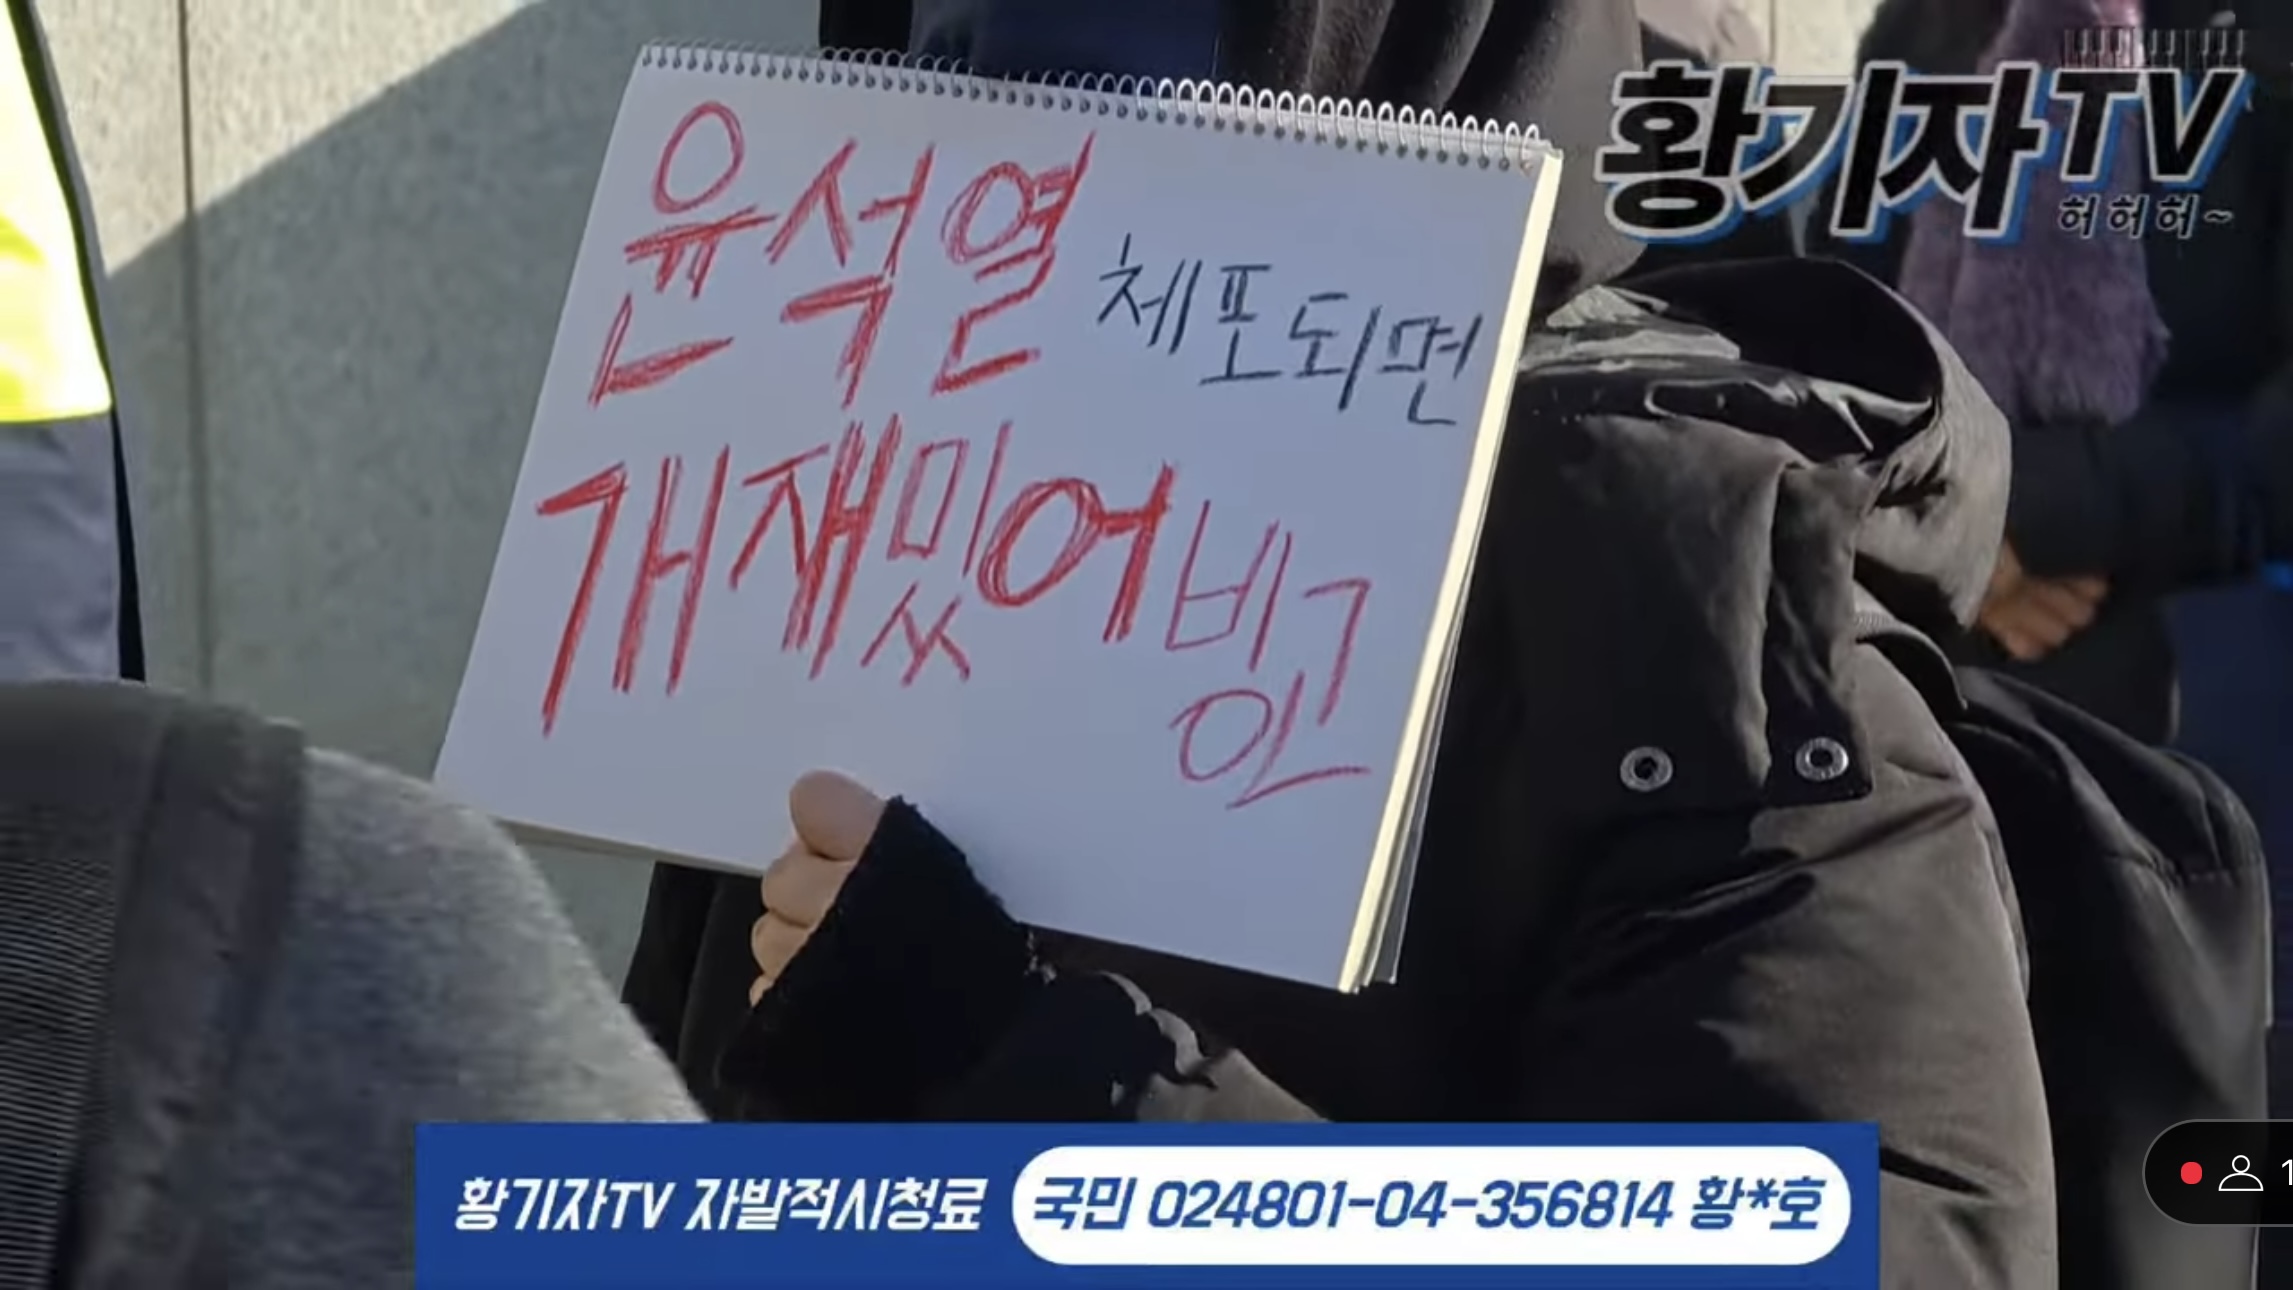 황기자TV
허허허~
윤석열 체포되면
개재밌어빙고
인
황기자TV 자발적시청료 국민 024801-04-356814 황*호
1